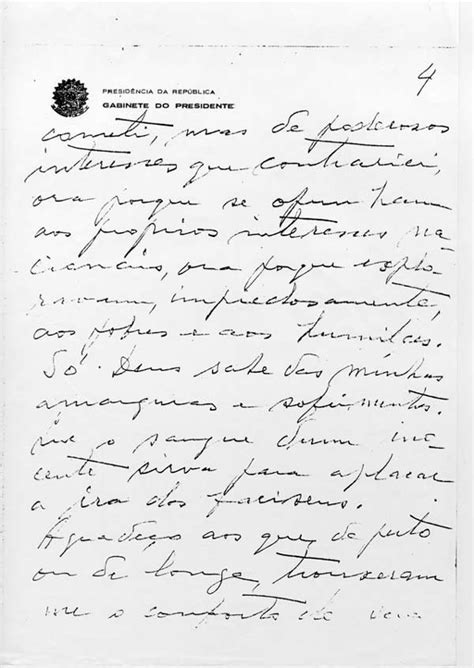 4
PRESIDÊNCIA DA REPÚBLICA
GABINETE DO PRESIDENTE
cometi, mas de poderosos
interesses que contrariei,
ora porque se opunham
aos próprios interesses na-
cionais, ora porque explo-
ravam, impiedosamente,
aos pobres e aos humildes.
Só Deus sabe das minhas
amarguras e sofrimentos.
Que o sangue dum ino-
cente sirva para aplacar
a ira dos fariseus.
Agradeço aos que, de perto
ou de longe, trouxeram-
me o conforto de